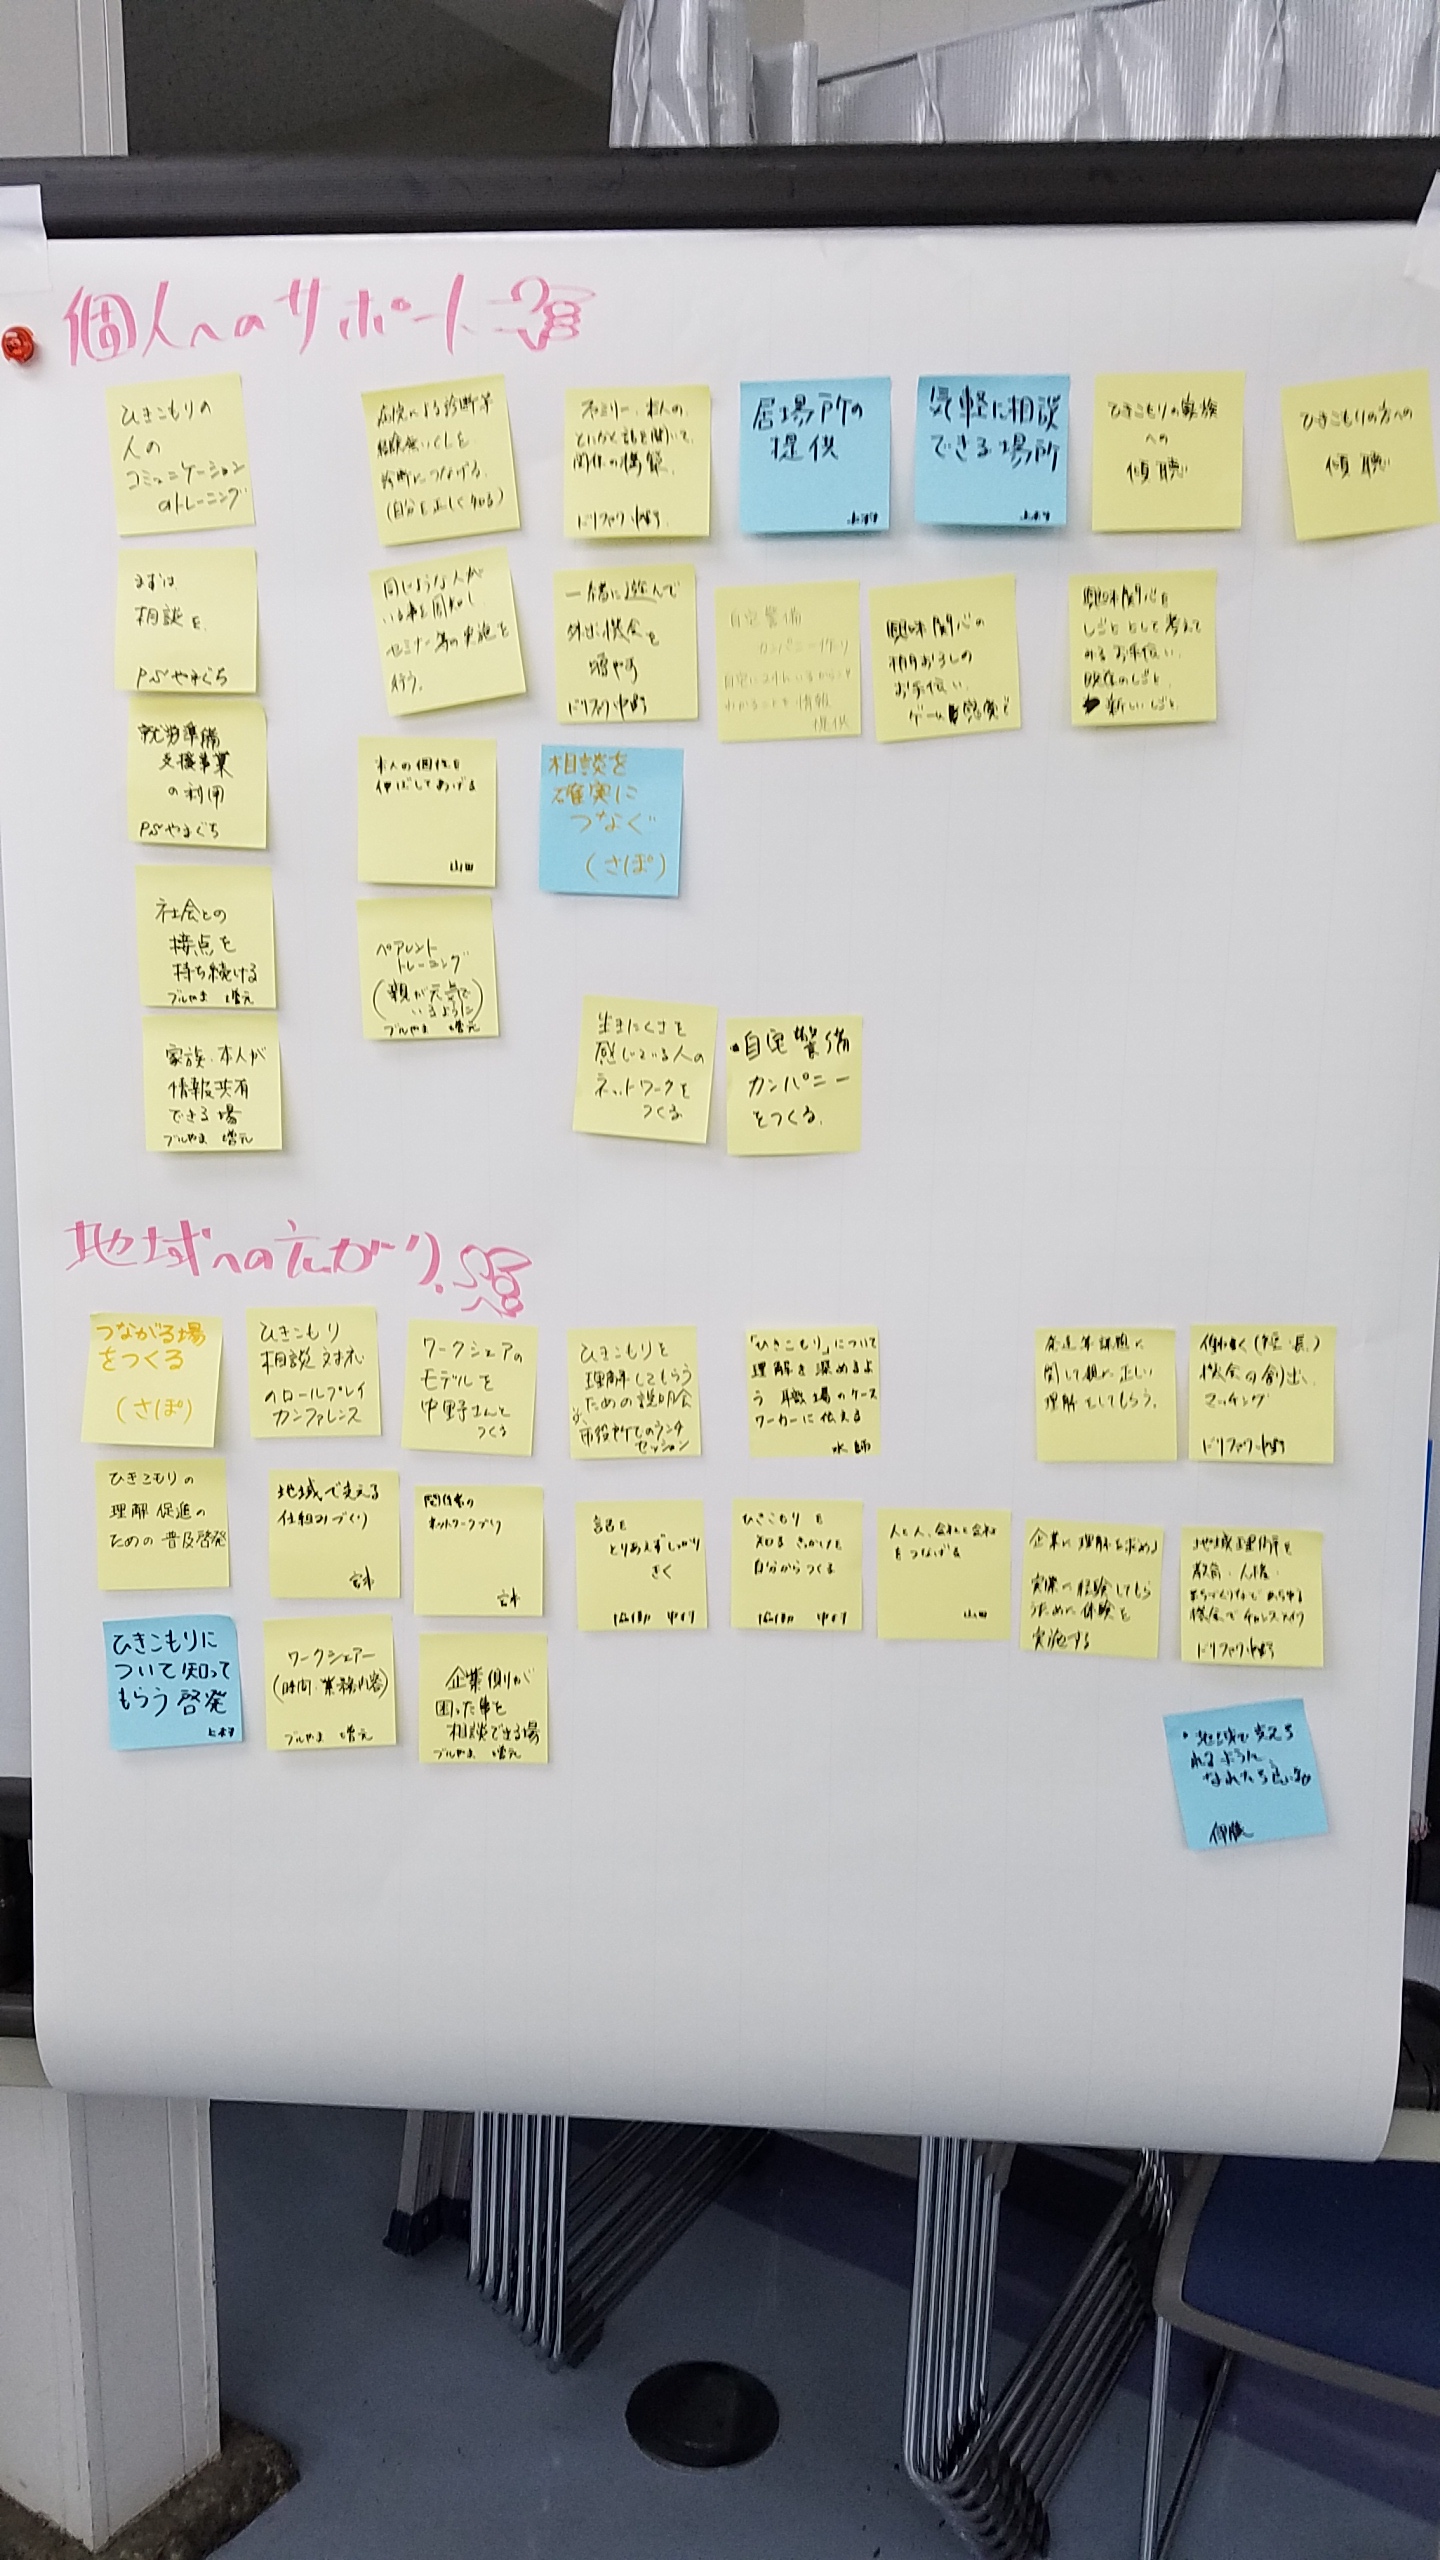 個人へのサポート
ひきこもりの
人の
コミュニケーション
のトレーニング
病院による診断等
診断につなげる。
(自分を正しく知る)
ファミリー、本人の、
とにかく話を聞いて、
関係の構築。
ドリファク中野
居場所の
提供
気軽に相談
できる場所
ひきこもりの家族
への
傾聴
ひきこもりの方への
傾聴
まずは、
相談を。
PSやまぐち
同じような人が
いる事を周知し、
セミナー等の実施を
行う。
一緒に遊んで
外出機会を
増やす
ドリファク中野
自宅警備
カンパニー作り
自宅に
わかることを情報
提供
興味関心の
お手伝い。
興味関心を
しごととして考えて
みるお手伝い。
既存のしごと、
新しいしごと
就労準備
支援事業
の利用
PSやまぐち
本人の個性を
伸ばしてあげる
山田
相談を
確実に
つなぐ
(さぽ)
社会との
接点を
持ち続ける
ブルやま 増元
ペアレント
トレーニング
(親が元気で
いるように)
ブルやま 増元
生きにくさを
感じている人の
ネットワークを
つくる
・自宅警備
カンパニー
をつくる。
家族・本人が
情報共有
できる場
ブルやま 増元
地域への広がり
つながる場
をつくる
(さぽ)
ひきこもり
相談対応
のロールプレイ
カンファレンス
ワークシェアの
モデルを
中野さんと
つくる
ひきこもりを
理解してもらう
ための説明会
市役所でのランチ
セッション
「ひきこもり」について
理解を深めるよ
う 職場のケース
ワーカーに伝える
水師
発達等課題に
関して親に正しい
理解をしてもらう。
働く(短・長)
機会の創出、
マッチング
ドリファク中野
ひきこもりの
理解促進の
ための普及啓発
地域で支える
仕組みづくり
宮本
関係者の
ネットワークづくり
宮本
話を
とりあえずしっかり
きく
ひきこもりを
知るきっかけを
自分からつくる
人と人、会社と会社
をつなげる
山田
企業に理解を求める
実際に経験してもら
うために体験を
実施する
地域理解を
教育・人権・
まちづくりなどあらゆる
機会で
ドリファク中野
ひきこもりに
ついて知って
もらう啓発
ワークシェアー
(時間、業務内容)
ブルやま 増元
企業側が
困った事を
相談できる場
ブルやま 増元
・地域で支えら
れるように
なれたら良いな
伊藤